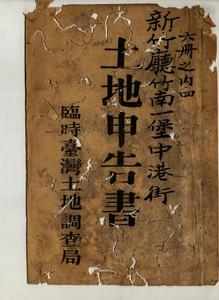 六冊之内四
新竹廳竹南一堡中港街
土地申告書
臨時臺灣土地調查局